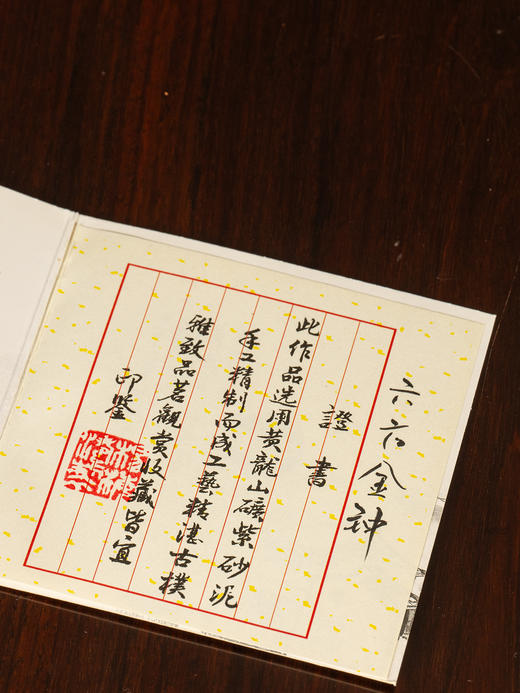 六六金钟
證書
此作品选用黄龍山礦紫砂泥
手工精制而成工藝精湛古樸
雅致品茗觀赏收藏皆宜
印鉴